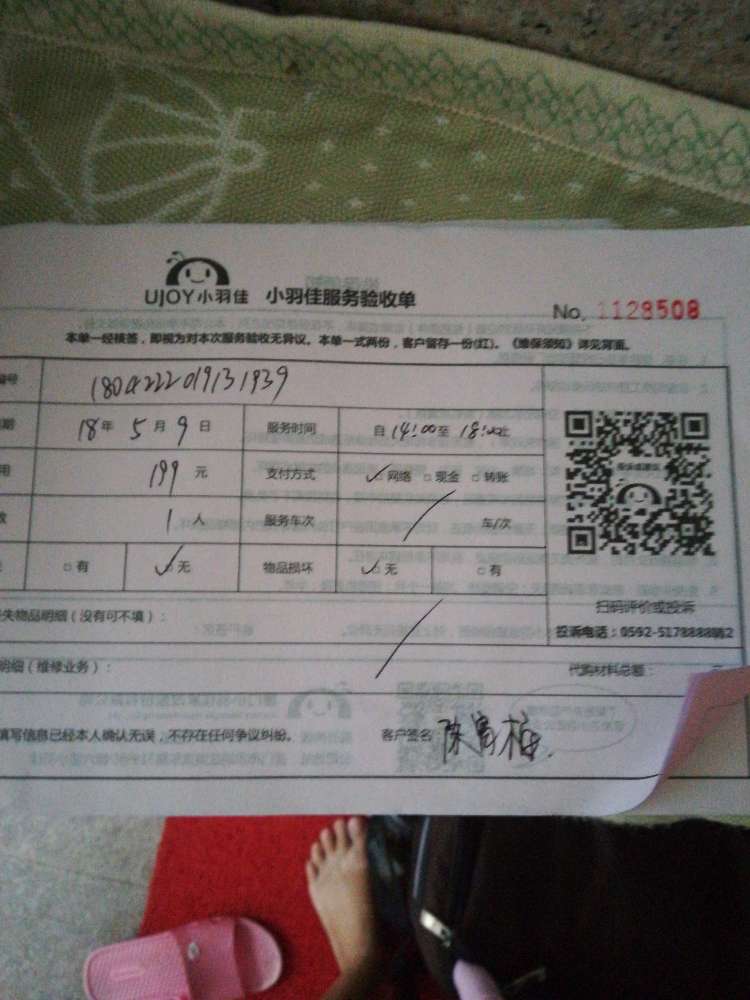 UJOY小羽佳 小羽佳服务验收单
No. 1128508
本单一经核签，即视为对本次服务验收无异议。本单一式两份，客户留存一份(红)。《维保须知》详见背面。
编号
期 18年 5月 9日 服务时间 自14:00至18:00止
用 199元 支付方式 ✓□网络 □现金 □转账
数 1人 服务车次 / 车/次
□有 ✓□无 物品损坏 ✓□无 □有
扫码评价或投诉
失物品明细（没有可不填）：
投诉电话：0592-5178888转2
明细（维修业务）： / 代购材料总额： 元
填写信息已经本人确认无误，不存在任何争议纠纷。 客户签名